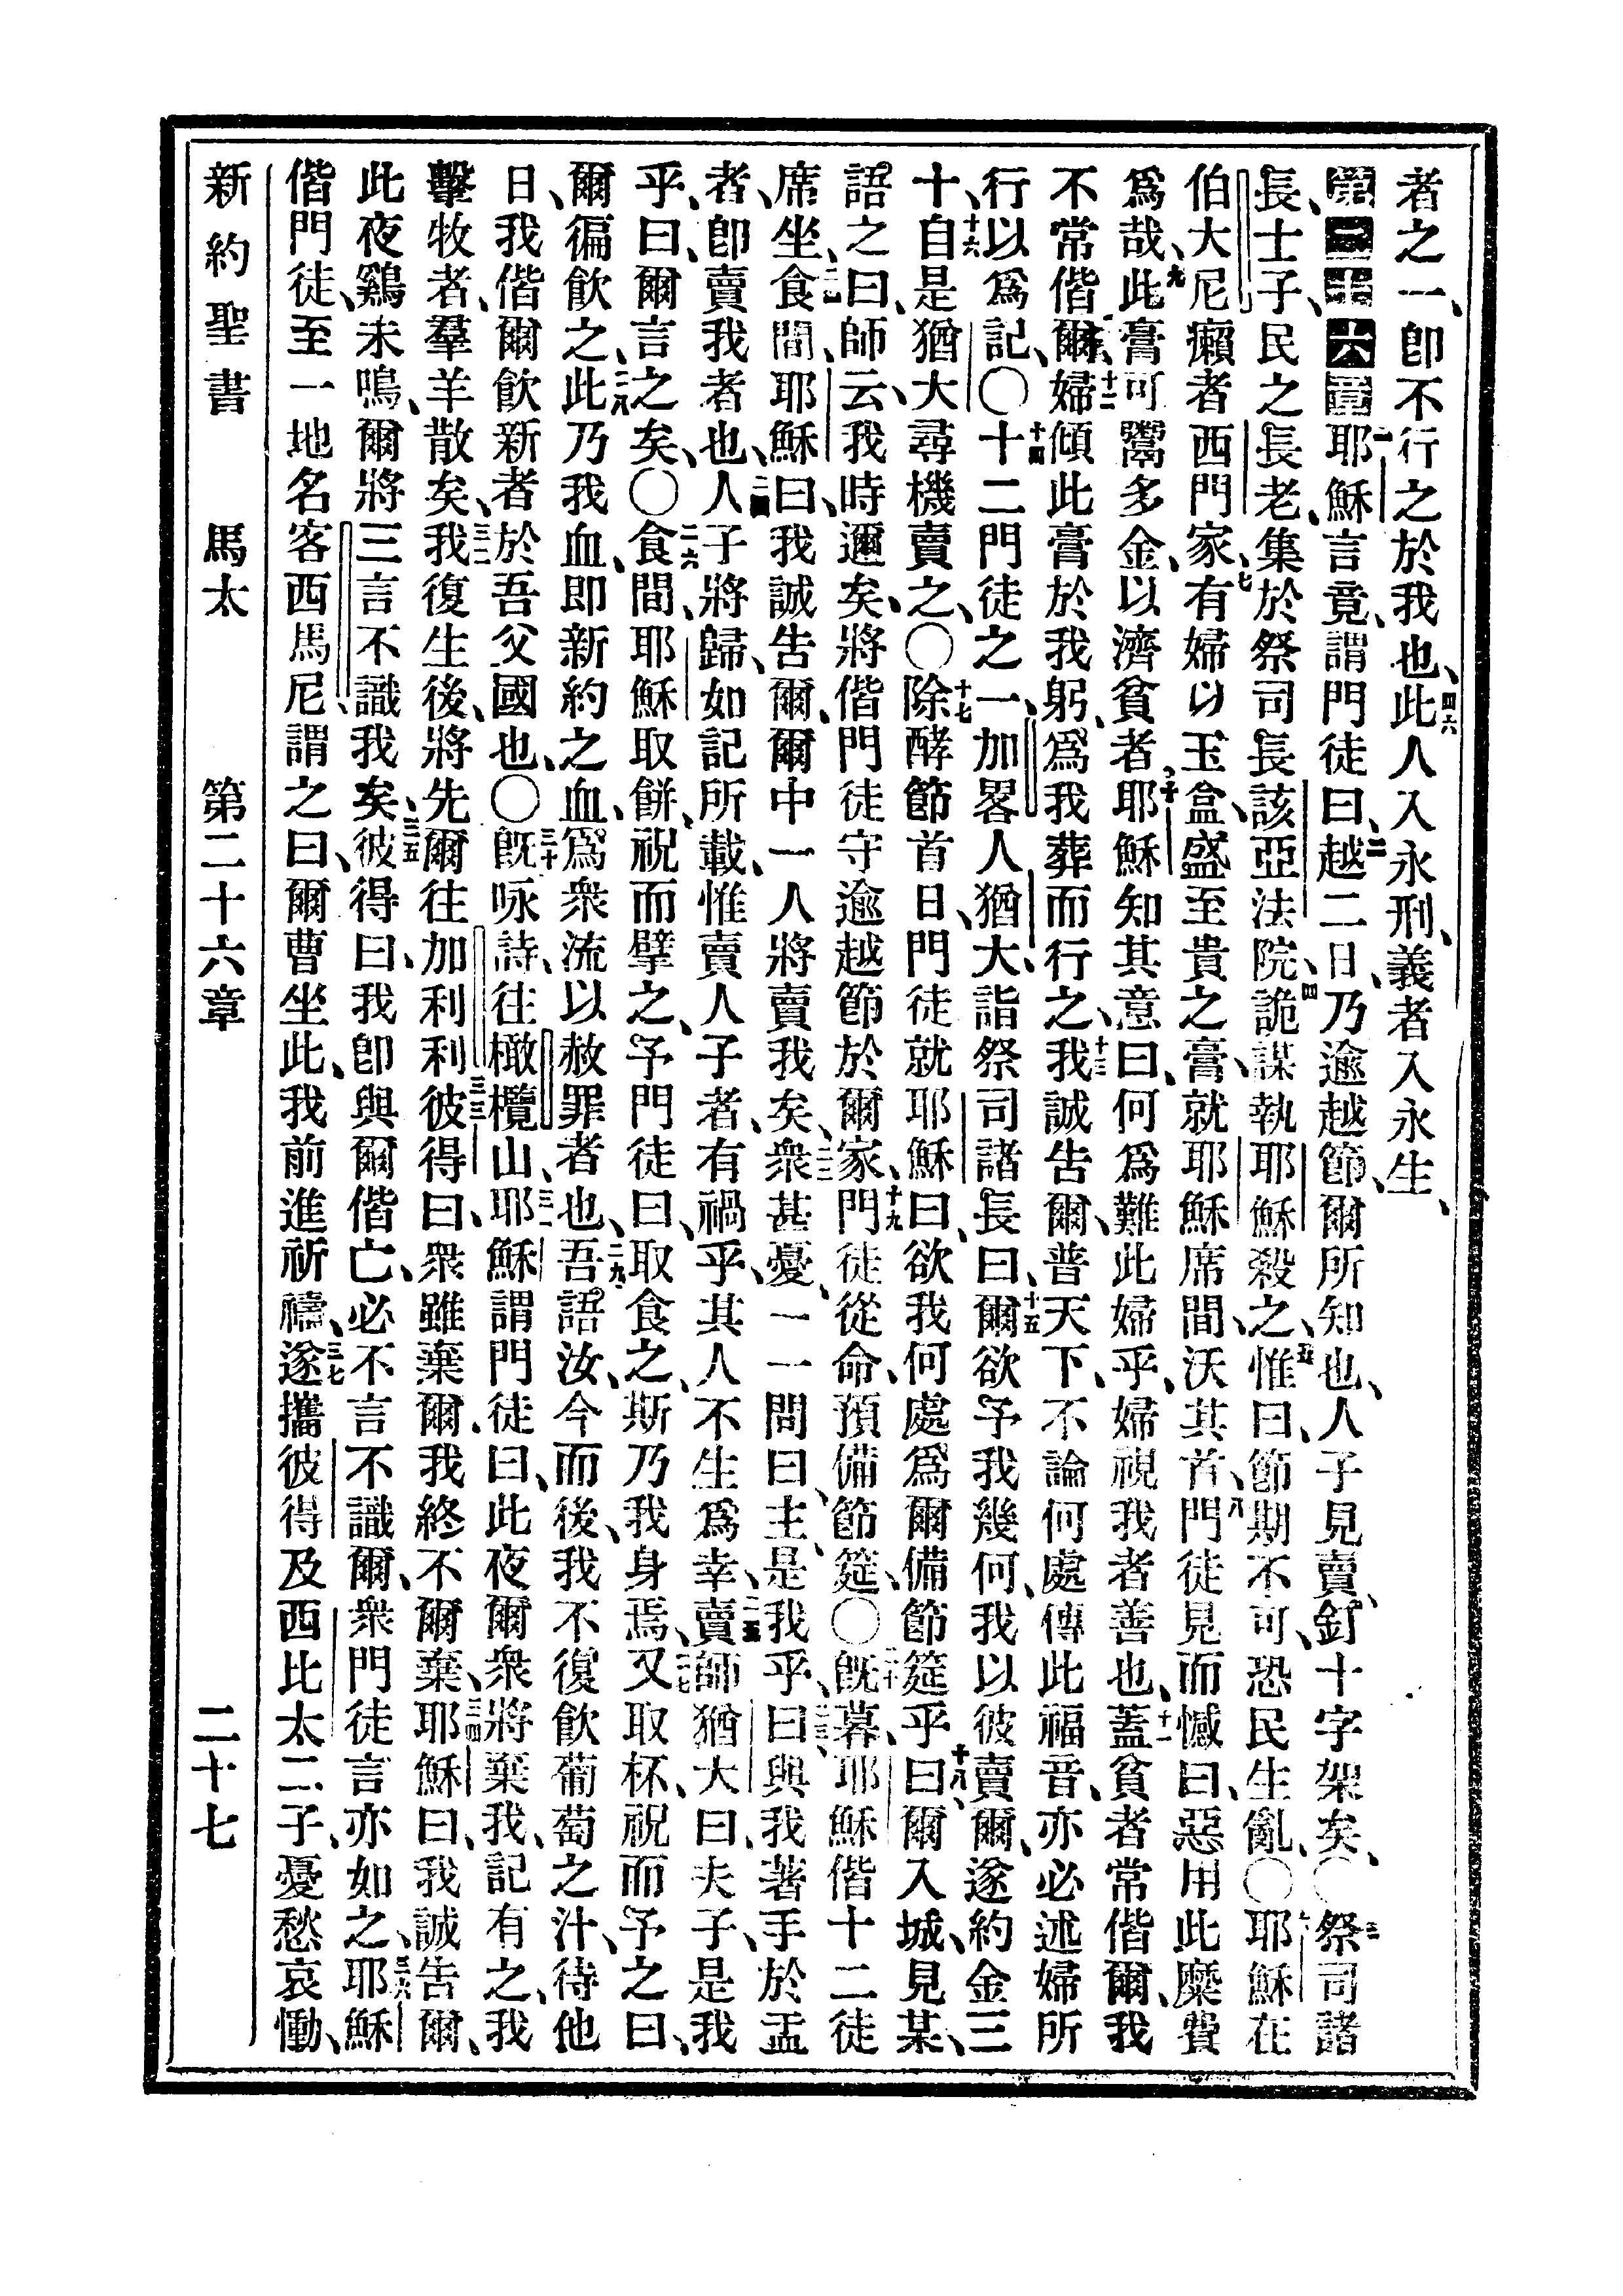 者之一、卽不行之於我也、四六此人入永刑、義者入永生、
第二十六章一耶穌言竟、謂門徒曰、二越二日、乃逾越節、爾所知也、人子見賣、釘十字架矣、〇三祭司諸
長、士子、民之長老、集於祭司長該亞法院、四詭謀執耶穌殺之、五惟曰、節期不可、恐民生亂、〇六耶穌在
伯大尼癩者西門家、七有婦以玉盒、盛至貴之膏、就耶穌席間、沃其首、八門徒見而憾曰、惡用此糜費
爲哉、九此膏可鬻多金、以濟貧者、十耶穌知其意曰、何爲難此婦乎、婦視我者善也、十一蓋貧者常偕爾、我
不常偕爾、十二婦傾此膏於我躬、爲我葬而行之、十三我誠告爾、普天下、不論何處傳此福音、亦必述婦所
行以爲記、〇十四十二門徒之一、加畧人猶大、詣祭司諸長曰、十五爾欲予我幾何、我以彼賣爾、遂約金三
十、十六自是猶大尋機賣之、〇十七除酵節首日、門徒就耶穌曰、欲我何處爲爾備節筵乎、十八曰、爾入城、見某、
語之曰、師云、我時邇矣、將偕門徒守逾越節於爾家、十九門徒從命、預備節筵、〇二十旣暮、耶穌偕十二徒
席坐、二一食間、耶穌曰、我誠告爾、爾中一人將賣我矣、二二衆甚憂、一一問曰、主、是我乎、二三曰、與我著手於盂
者、卽賣我者也、二四人子將歸、如記所載、惟賣人子者、有禍乎、其人不生爲幸、二五賣師猶大曰、夫子、是我
乎、曰、爾言之矣、〇二六食間、耶穌取餅、祝而擘之、予門徒曰、取食之、斯乃我身焉、二七又取杯、祝而予之曰、
爾徧飮之、二八此乃我血、卽新約之血、爲衆流以赦罪者也、二九吾語汝、今而後、我不復飮葡萄之汁、待他
日、我偕爾飮新者於吾父國也、〇三十旣咏詩、往橄欖山、三一耶穌謂門徒曰、此夜爾衆將棄我、記有之、我
擊牧者、羣羊散矣、三二我復生後、將先爾往加利利、三三彼得曰、衆雖棄爾、我終不爾棄、三四耶穌曰、我誠告爾、
此夜鷄未鳴、爾將三言不識我矣、三五彼得曰、我卽與爾偕亡、必不言不識爾、衆門徒言亦如之、三六耶穌
偕門徒、至一地名客西馬尼、謂之曰、爾曹坐此、我前進祈禱、三七遂攜彼得及西比太二子、憂愁哀慟、
新約聖書　馬太　第二十六章　二十七